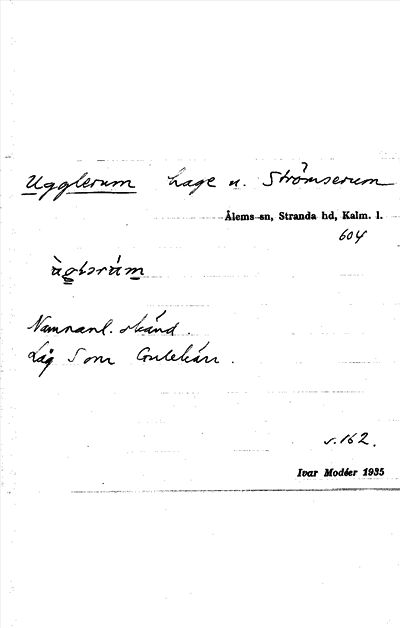 Ugglerum hage u. Strömserum
Ålems sn, Stranda hd, Kalm. l.
604
Namnanl. okänd.
Låg som
s. 162.
Ivar Modéer 1935